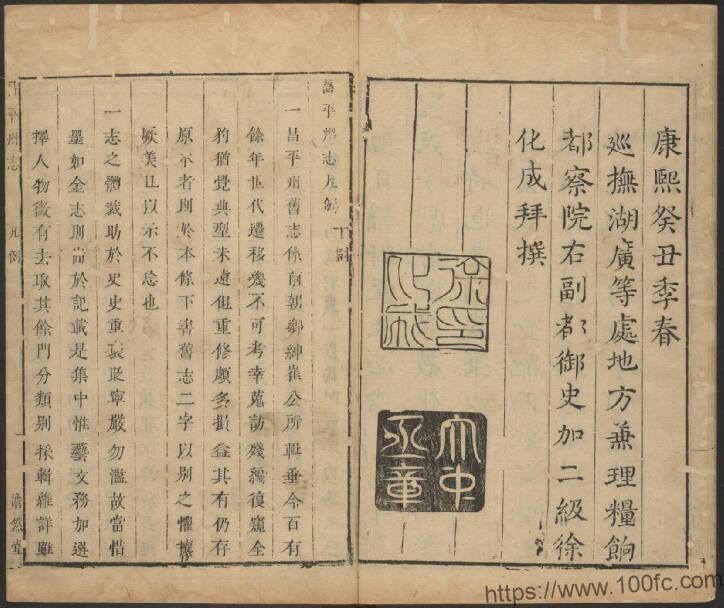 康熙癸丑季春
巡撫湖廣等處地方兼理糧餉
都察院右副都御史加二級徐
化成拜撰
徐化成印
大中丞章
昌平州志凡例
一昌平州舊志係前朝鄉紳崔公所輯垂今百有
餘年世代遷移幾不可考幸蒐訪殘編復窺全
豹猶覺典型未遠但重修頗多損益其有仍存
原本者則於本條下書舊志二字以別之懼攘
厥美且以示不忘也
一志之體裁昉於史史重袞貶寧嚴勿濫故當惜
墨如金志則尚於記載是集中惟藝文務加選
擇人物微有去取其餘門分類別採輯維詳雖
昌平州志 凡例 澹然堂
https://www.100fc.com